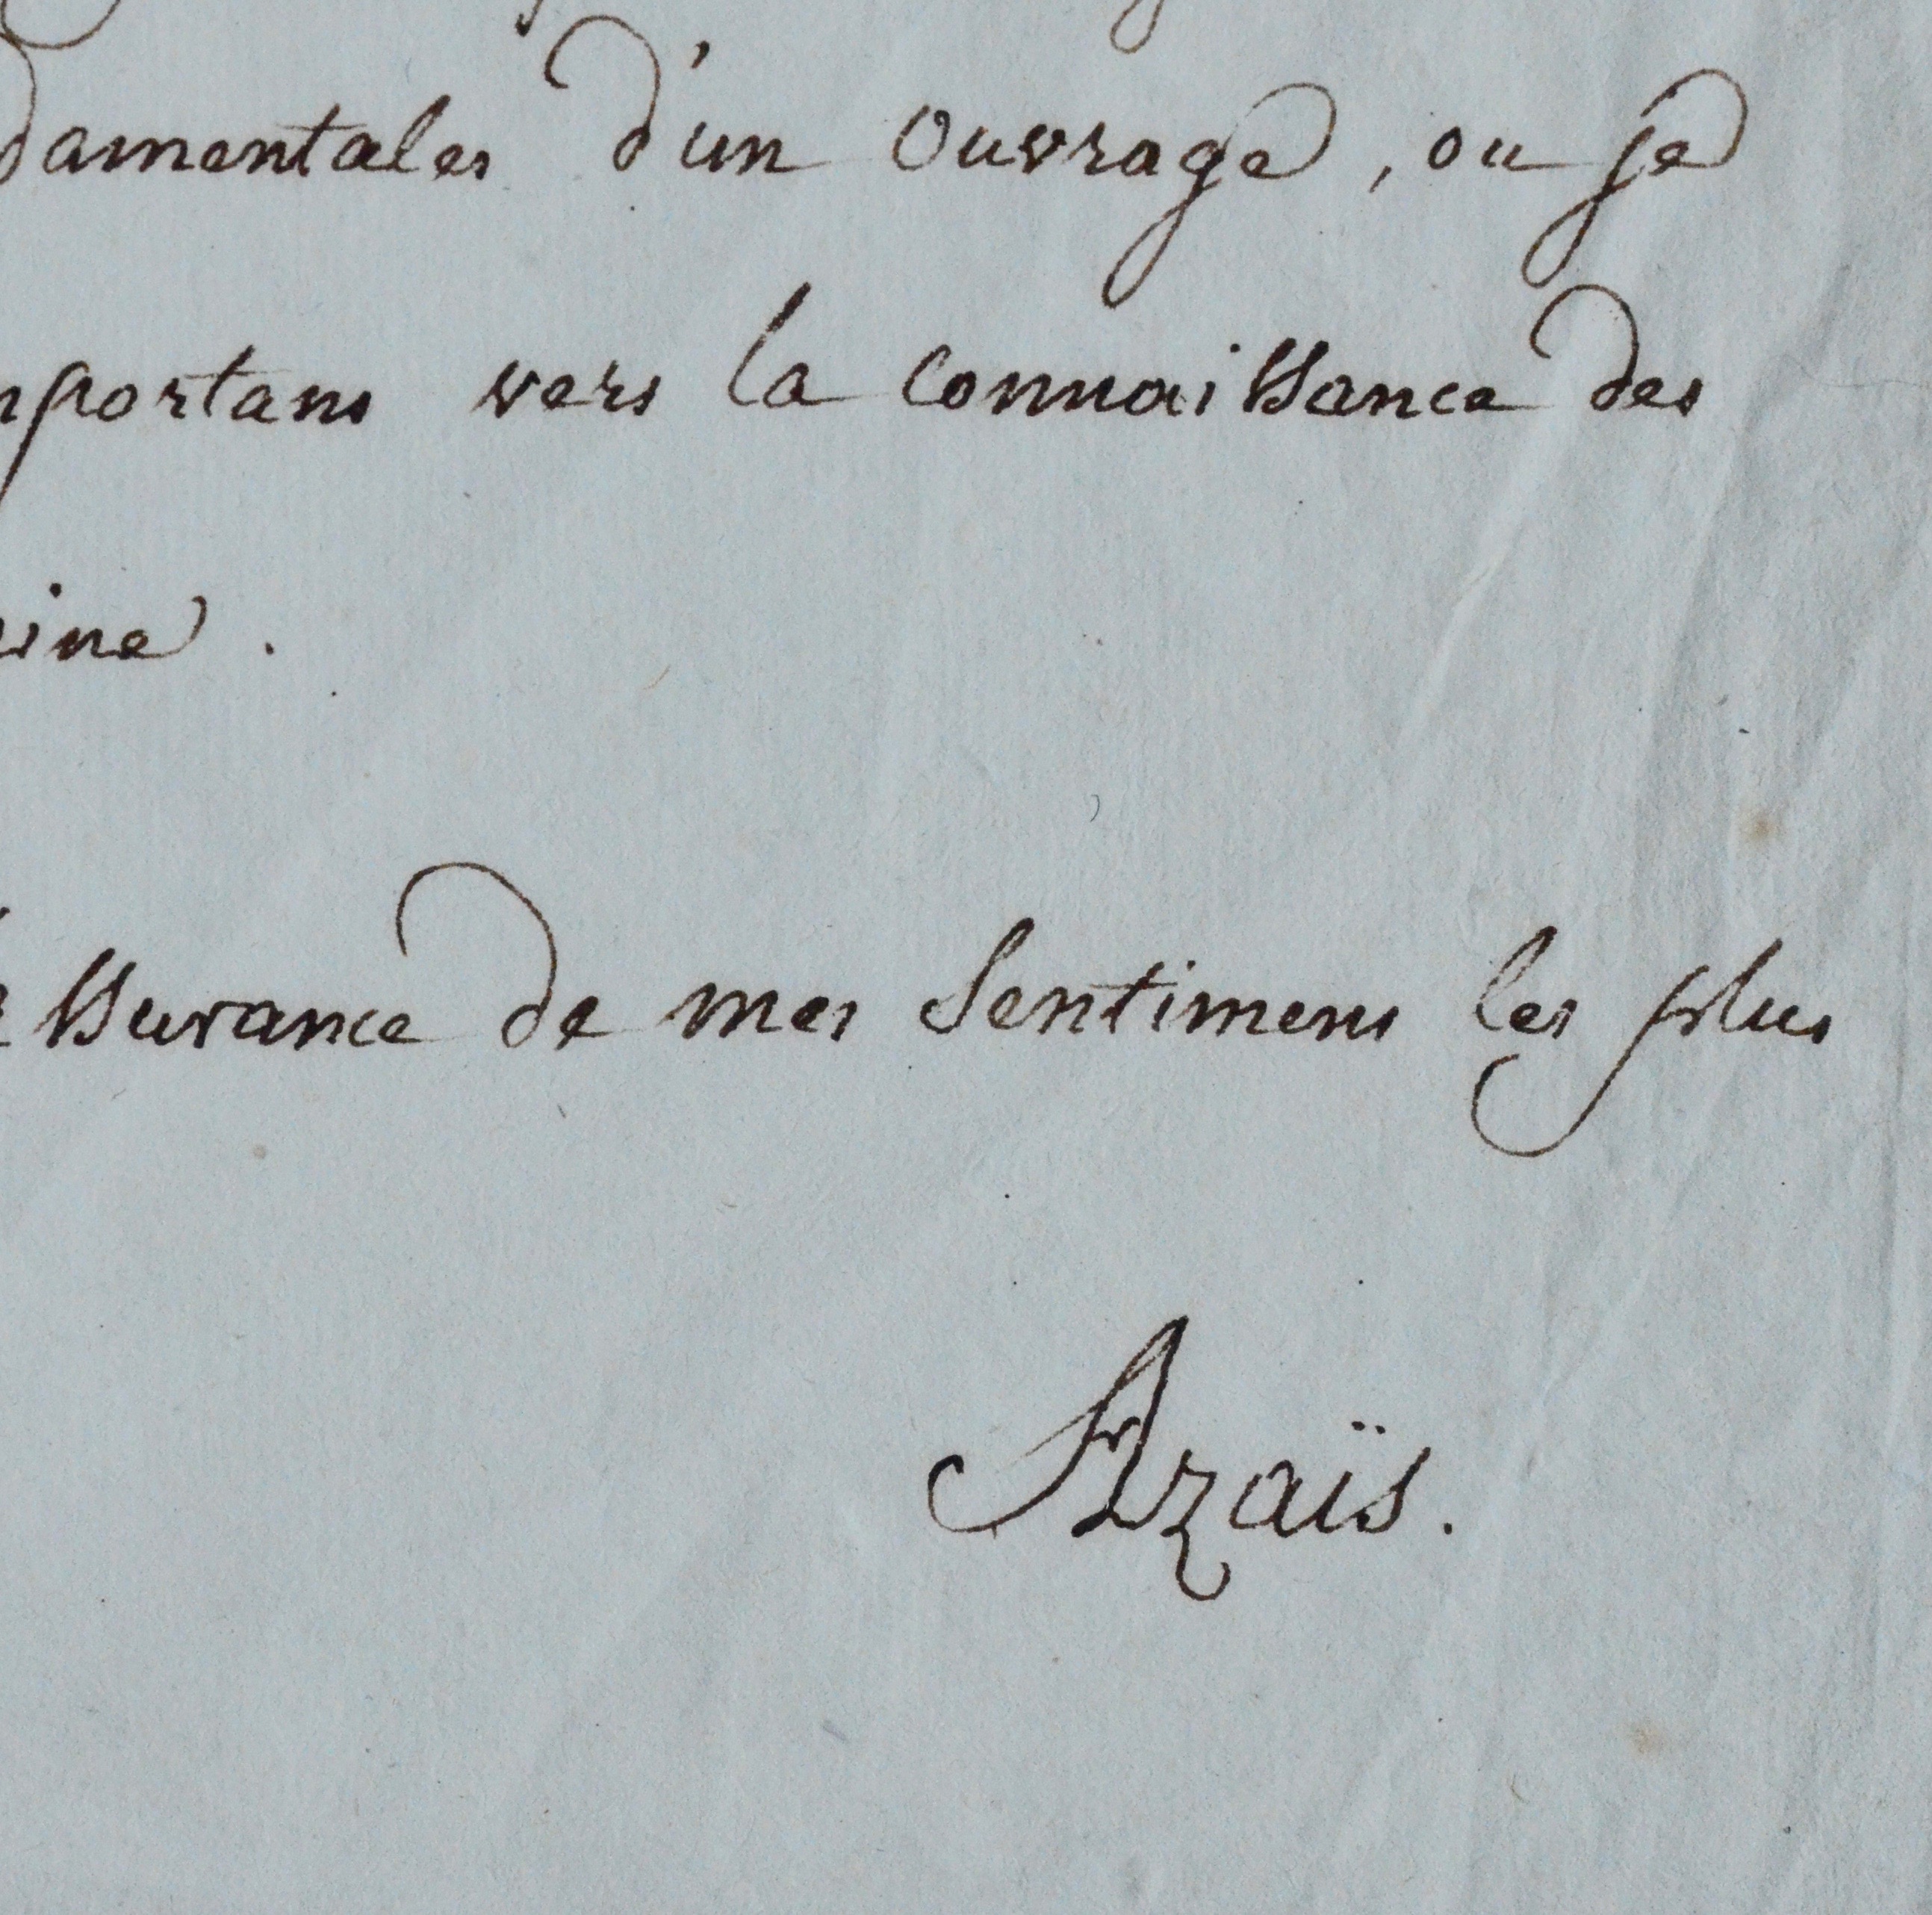 damentales d'un ouvrage, ou je
mportans vers la connaissance des
ine.
ssurance de mes sentimens les plus
Azaïs.